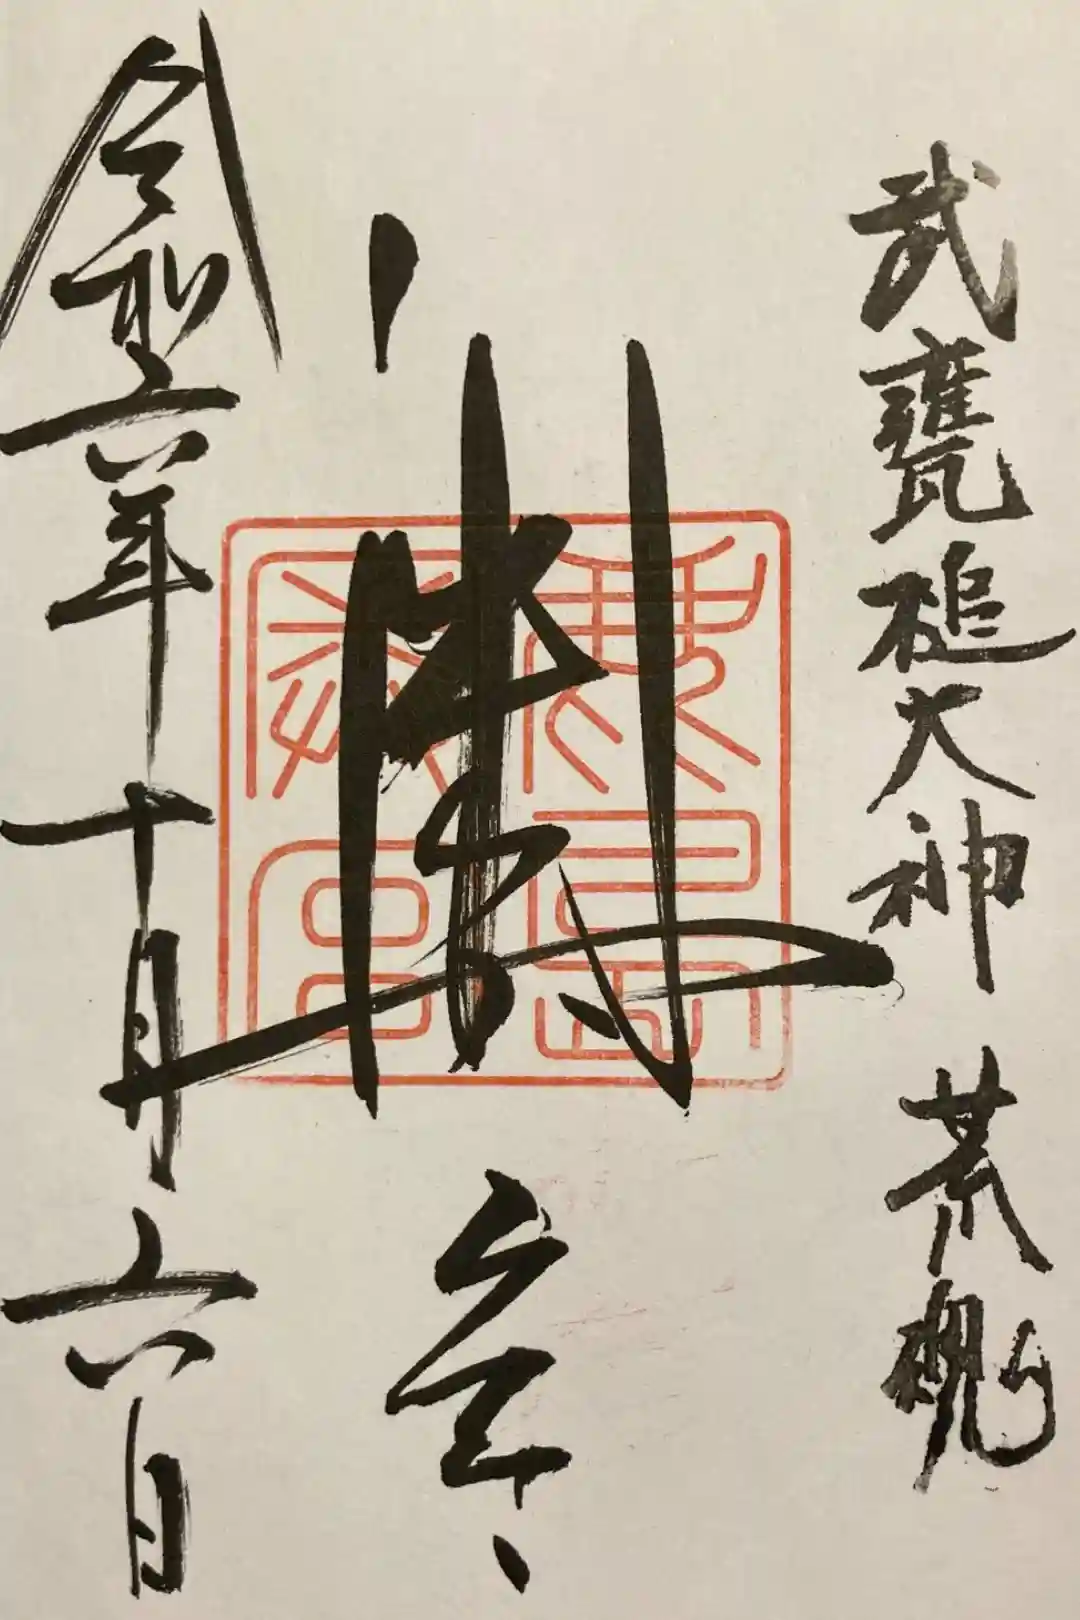 武甕槌大神 荒魂
奥宮
鹿島
奥宮
令和六年十月六日